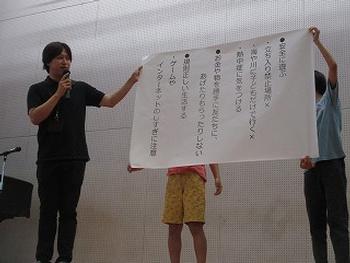 ●安全に遊ぶ
・立ち入り禁止場所×
・海や川に子どもだけで行く×
・熱中症に気をつける
●お金や物を勝手に友だちに、
あげたりもらったりしない
●規則正しい生活する
・ゲームや
インターネットのしすぎに注意